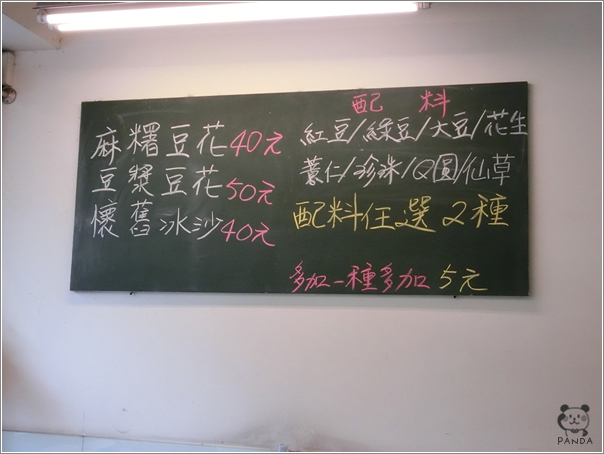 麻糬豆花40元
豆漿豆花50元
懷舊冰沙40元
配料
紅豆/綠豆/大豆/花生
薏仁/珍珠/Q圓/仙草
配料任選2種
多加一種多加5元
PANDA